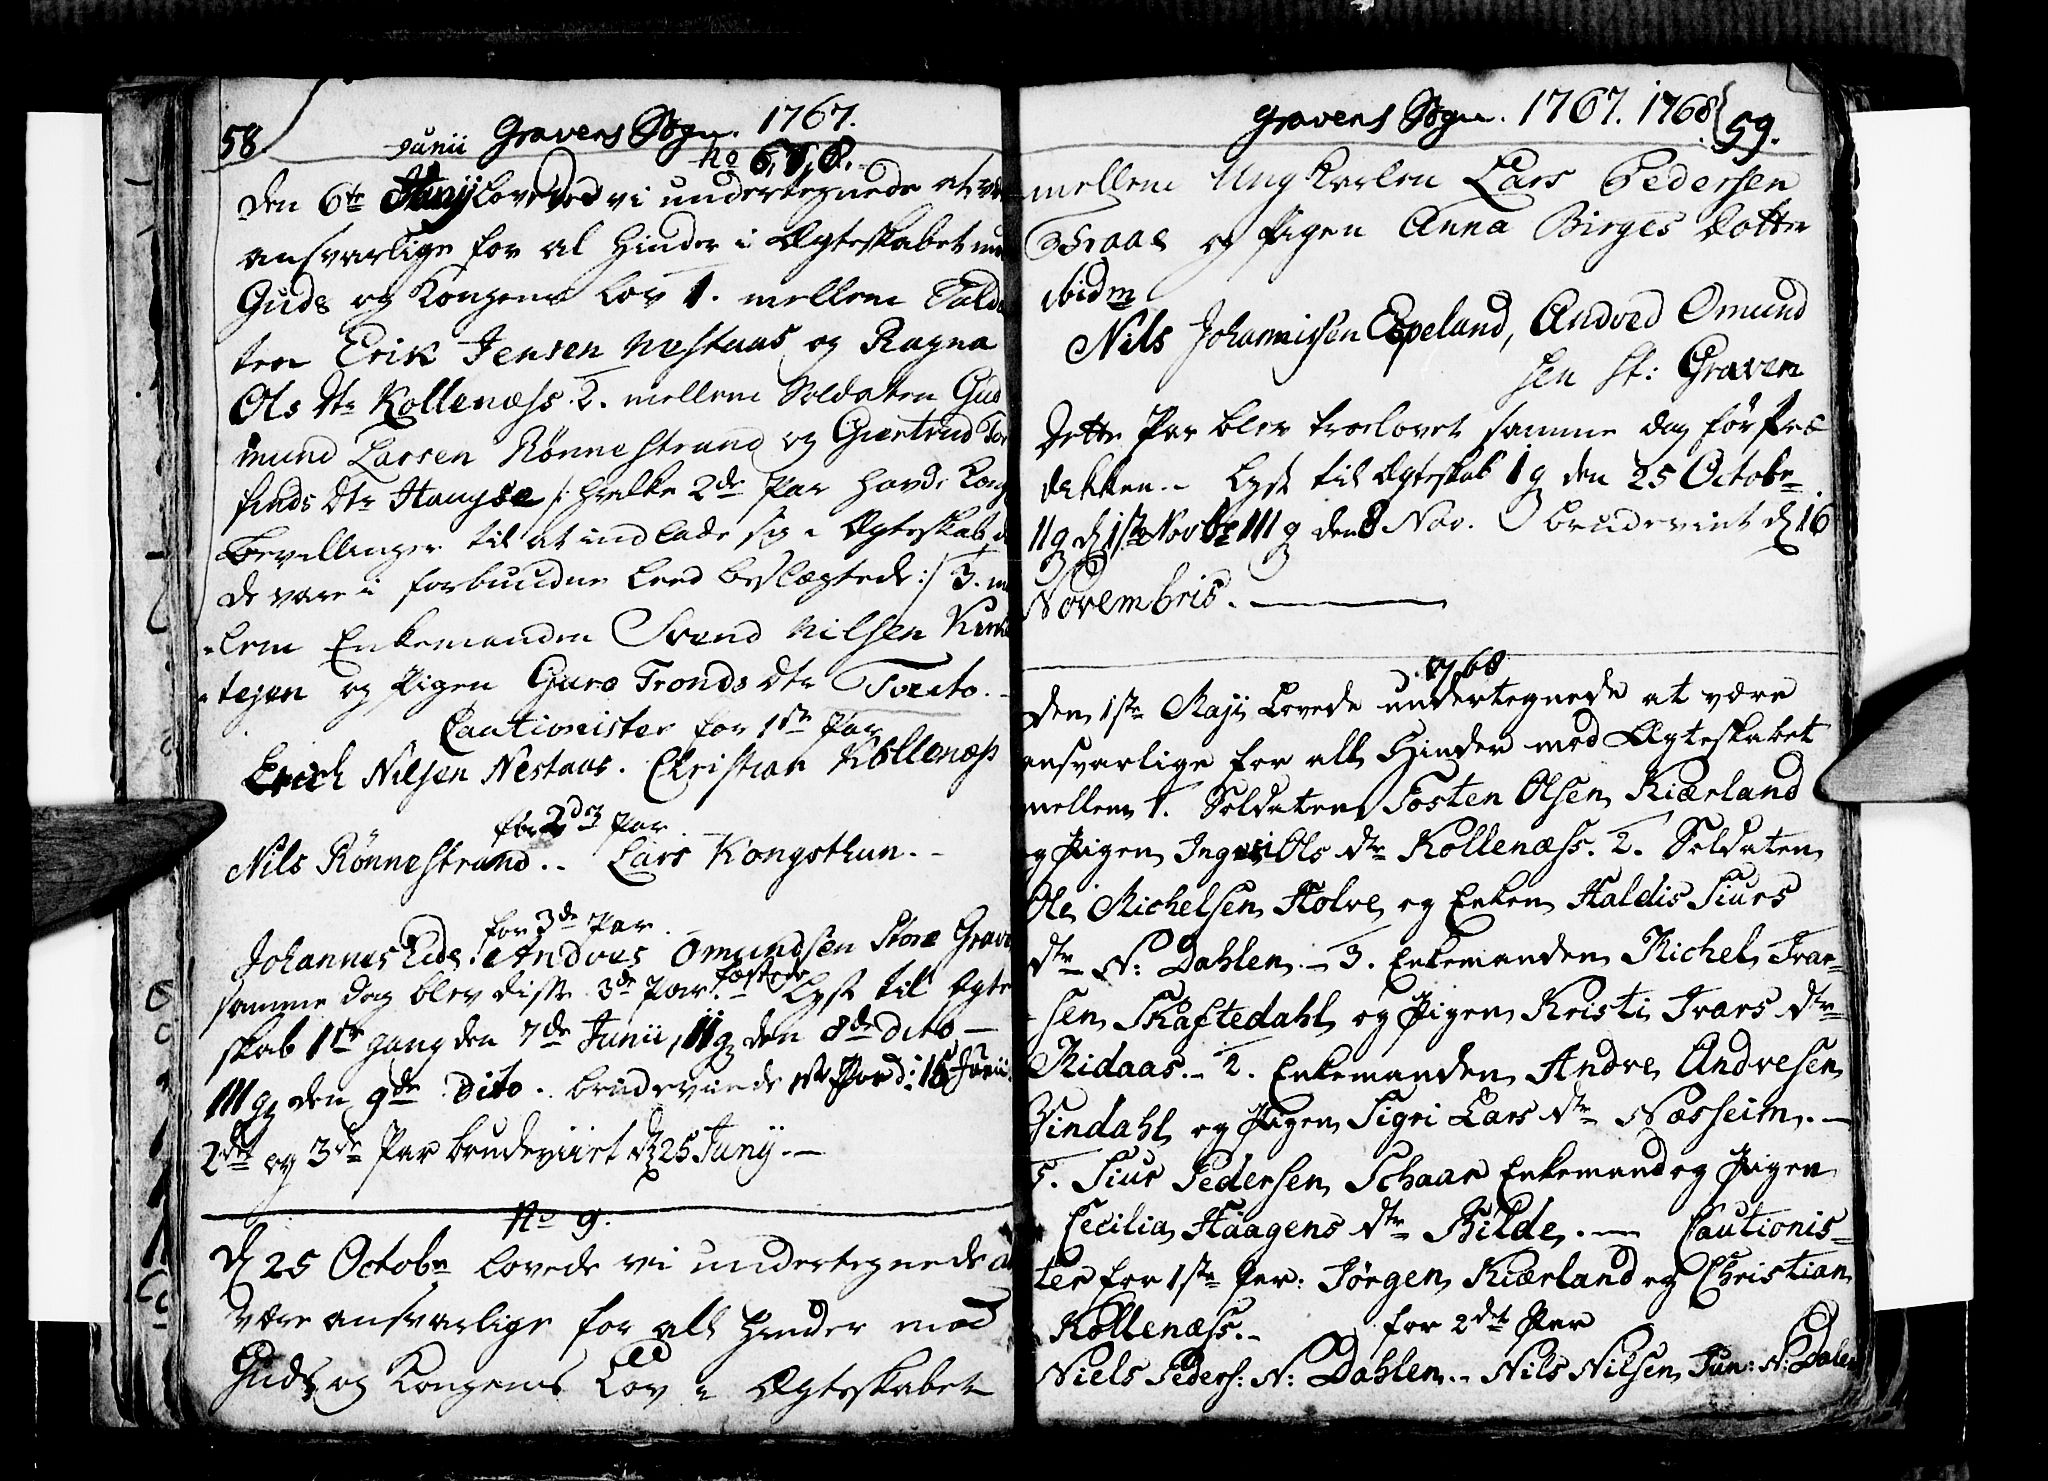 58.
Junii Gravens Sogn. 1767.
No 6, 7, 8.
Den 6te Junij lovede vi undertegnede at være
ansvarlige for al Hinder i Ægteskabet mod
Guds og Kongens Lov 1. mellem Solda
ten Erik Jensen Nestaas og Ragna
Ols dtr Kollenæss. 2. mellem Soldaten Gud
mund Larsen Rönnestrand og Giertrud Tor
finds Dtr Haugse /: hvilke 2de Par havde Kong
Bevillinger til at indlade sig i Ægteskab, da
de vare i forbudne Leed beslægtede :/ 3. mel
lem Enkemanden Svend Nilsen Kirke
tejen og Pigen Guro Tronds Dtr Tveito. -
Cautionister for 1ste Par
Erich Nilsen Nestaas. Christian Kollenæss
for 2det Par
Nils Rönnestrand. - Lars Kongsthun. -
for 3de Par.
Johannes Eide. Andves Omundsen Store Graven
samme dag blev disse 3de Par fæstede. Lyst til Ægte
skab 1te gang den 7de Junii, II g den 8de dito -
III g den 9de Dito. brudeviede 1ste Par d: 16 Junii.
2det og 3de Par brudeviirt d 25 Junij. -
No 9.
D 25 Octobr lovede vi undertegnede at
være ansvarlige for alt Hinder mod
Guds og Kongens Lov i Ægteskabet
Gravens Sogn. 1767. 1768 59.
mellem Ungkarlen Lars Pedersen
Traae og Pigen Anna Birges Dotter
ibidm
Nils Johannissen Espeland, Andved Omund
sen St: Graven
Dette Par blev troelovet samme dag för Præ
dikken. - Lyst til Ægteskab I g den 25 Octobr
II g d 1ste Novbr III g den 8 Nov. brudeviiet d 16
Novembris.
1768
Den 1ste Maji Lovede undertegnede at være
ansvarlige for alt Hinder mod Ægteskabet
mellem 1. Soldaten Tosten Olsen Kiærland
og Pigen Ingeri Ols dtr Kollenæss. 2. Soldaten
Ole Michelsen Holve og Enken Haldis Siurs
dtr N: Dahlen. - 3. Enkemanden Michel Ivar-
sen Skaftedahl og Pigen Kristi Ivars dtr
Midaas. - 2. Enkemanden Andve Andvesen
Vindahl og Pigen Sigri Lars dtr Næsheim. -
5. Siur Pedersen Schaar Enkemand og Pigen
Cecilia Haagens dtr Bilde. - Cautionis-
ter for 1ste Par: Jörgen Kiærland og Christian
Kollenæss. - for 2det Par
Niels Peders: N: Dahlen. - Nils Nilsen Jun: N: Dalen